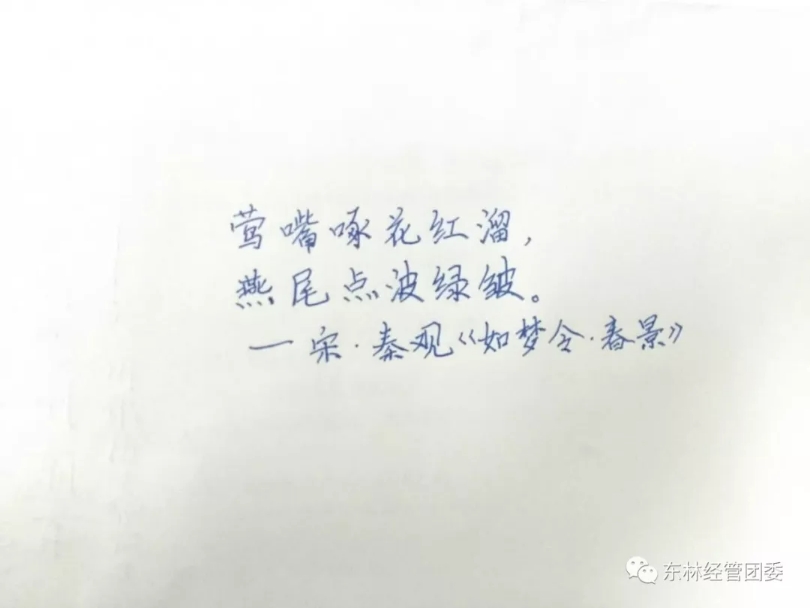 莺嘴啄花红溜，
燕尾点波绿皱。
—宋·秦观《如梦令·春景》
东林经管团委